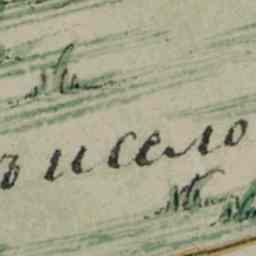 ъ и село